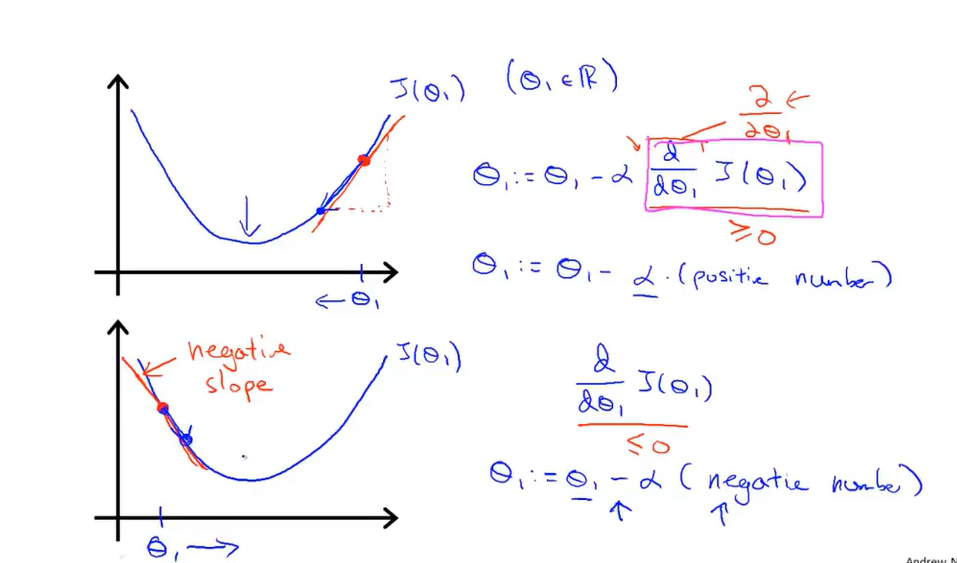 J(θ₁) (θ₁ ∈ ℝ)
∂/∂θ₁ ←
θ₁ := θ₁ - α d/dθ₁ J(θ₁)
≥ 0
θ₁ := θ₁ - α · (positie number)
← θ₁
negative slope
J(θ₁)
d/dθ₁ J(θ₁)
≤ 0
θ₁ := θ₁ - α (negatie number)
θ₁ →
Andrew N